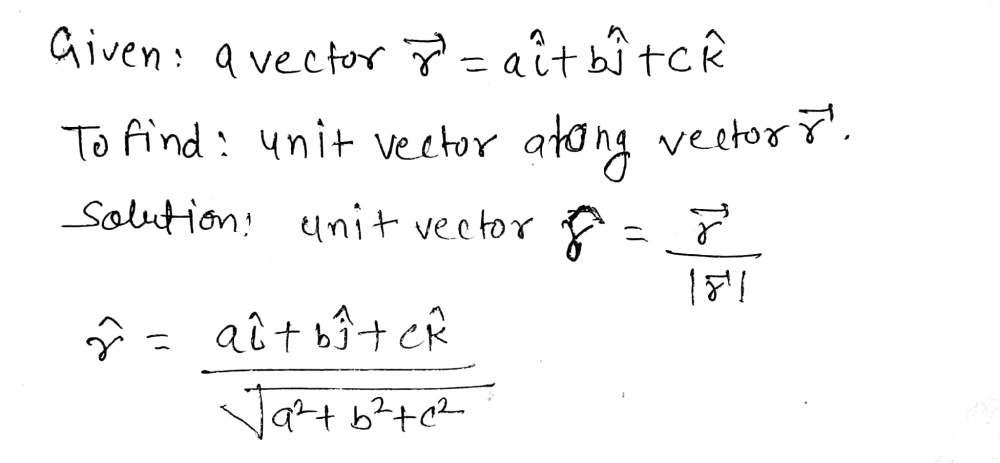 Given: a vector r⃗ = aî + bĵ + ck̂
To find: unit vector along vector r⃗.
Solution: unit vector r̂ = r⃗ / |r⃗|
r̂ = aî + bĵ + ck̂ / √a²+b²+c²